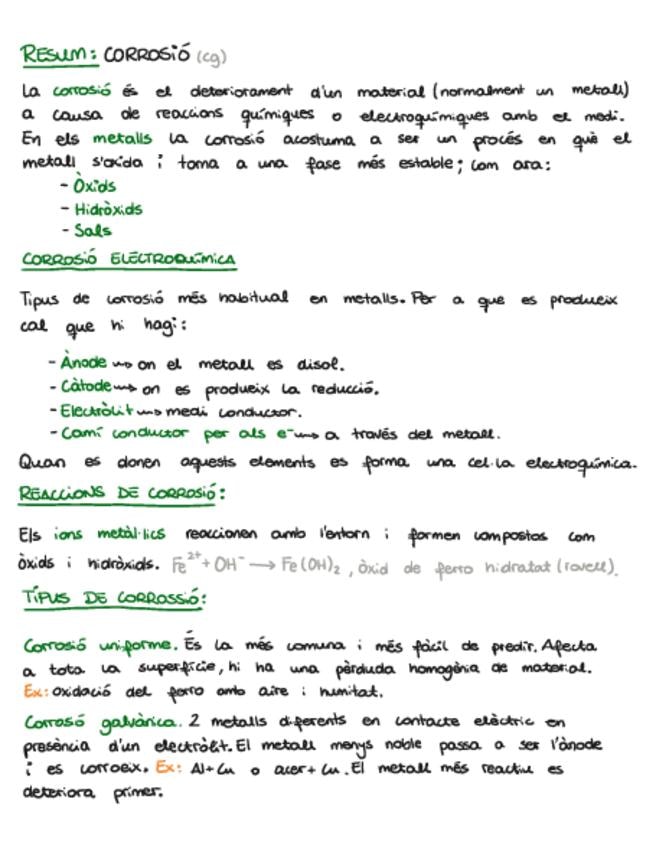 RESUM: CORROSIÓ (cg)
La corrosió és el deteriorament d'un material (normalment un metall)
a causa de reaccions químiques o electroquímiques amb el medi.
En els metalls la corrosió acostuma a ser un procés en què el
metall s'oxida i torna a una fase més estable; com ara:
- Òxids
- Hidròxids
- Sals
CORROSIÓ ELECTROQUÍMICA
Tipus de corrosió més habitual en metalls. Per a que es produeix
cal que hi hagi:
- Ànode ⟿ on el metall es disol.
- Càtode ⟿ on es produeix la reducció.
- Electròlit ⟿ medi conductor.
- Camí conductor per als e⁻ ⟿ a través del metall.
Quan es donen aquests elements es forma una cel·la electroquímica.
REACCIONS DE CORROSIÓ:
Els ions metàl·lics reaccionen amb l'entorn i formen compostos com
òxids i hidròxids. Fe²⁺ + OH⁻ → Fe(OH)₂, òxid de ferro hidratat (rovell).
TÍPUS DE CORROSSIÓ:
Corrosió uniforme. És la més comuna i més fàcil de predir. Afecta
a tota la superfície, hi ha una pèrduda homogènia de material.
Ex: oxidació del ferro amb aire i humitat.
Corrosó galvànica. 2 metalls diferents en contacte elèctric en
presència d'un electròlit. El metall menys noble passa a ser l'ànode
i es corroeix. Ex: Al+Cu o acer+Cu. El metall més reactiu es
deteriora primer.